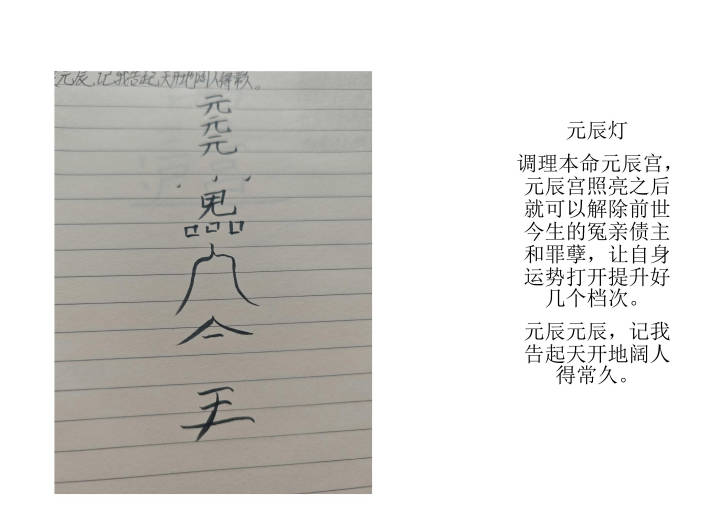 元辰,记我告起天开地阔人得常久。
元
元
元
鬼
口口口
元辰灯
调理本命元辰宫，
元辰宫照亮之后
就可以解除前世
今生的冤亲债主
和罪孽，让自身
运势打开提升好
几个档次。
元辰元辰，记我
告起天开地阔人
得常久。